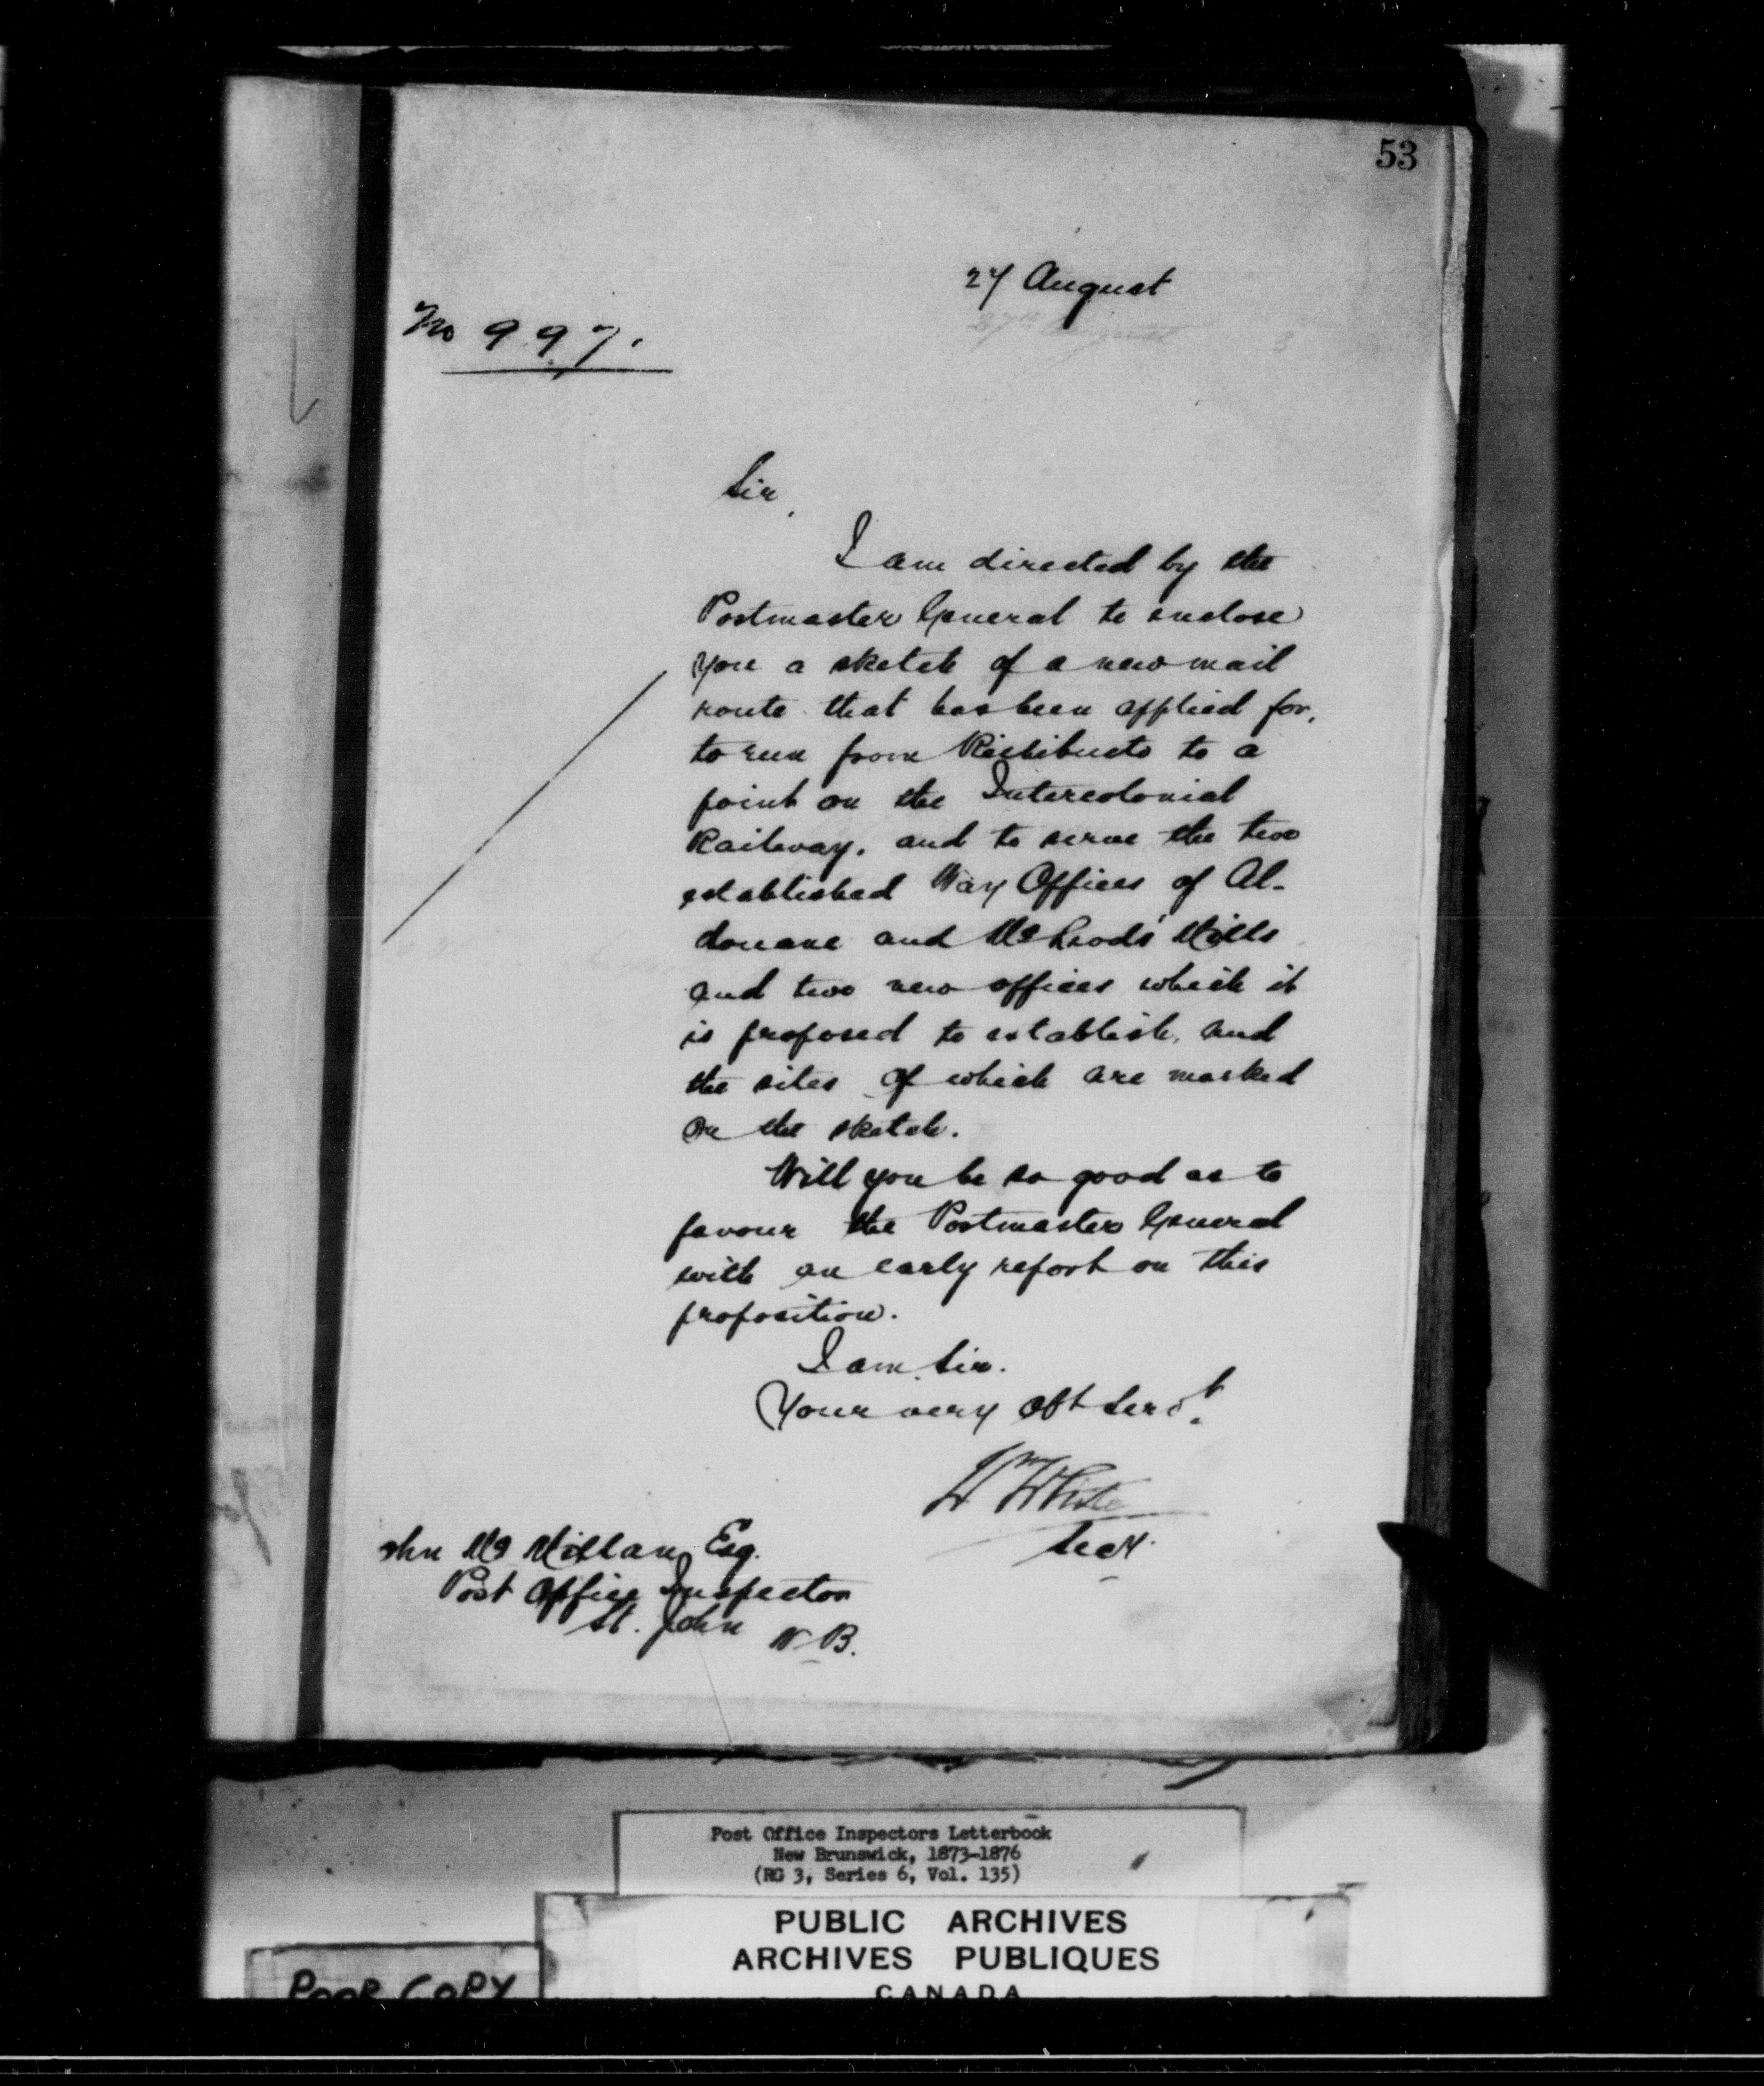 53
27 August
No 997.
Sir,
I am directed by the
Postmaster General to enclose
you a sketch of a new mail
route that has been applied for,
to run from Richibucto to a
point on the Intercolonial
Railway, and to serve the two
established Way Offices of Al-
douane and McLeods' Mills
and two new offices which it
is proposed to establish, and
the sites of which are marked
on the sketch.
Will you be so good as to
favour the Postmaster General
with an early report on this
proposition.
I am, Sir.
Your very Obt Servt.
Wm White
Secy.
ohn McMillan Esq.
Post Office Inspector
St. John N-B.
Post Office Inspectors Letterbook
New Brunswick, 1873-1876
(RG 3, Series 6, Vol. 135)
PUBLIC ARCHIVES
ARCHIVES PUBLIQUES
CANADA
POOR COPY